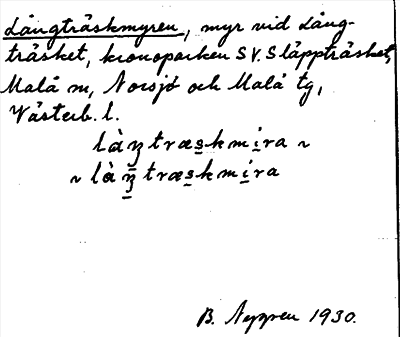 Långträskmyren, myr vid Lång-
träsket, kronoparken S V. Släppträsket,
Malå sn, Norsjö och Malå tg,
Västerb. l.
làŋtræs̲kmi̲ra ~
~ làŋ̲træs̲kmi̲ra
B. 1930.